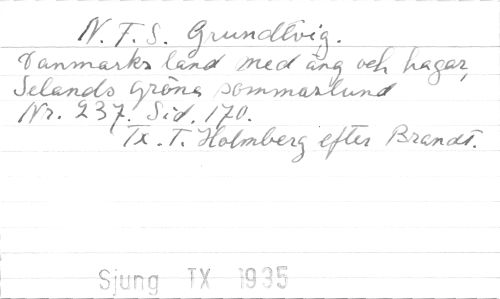 N. F. S. Grundtvig.
Danmarks land med äng och hagar,
Selands gröna sommarlund
Nr. 237. Sid. 170.
Tx. T. Holmberg efter Brandt.
Sjung TX 1935